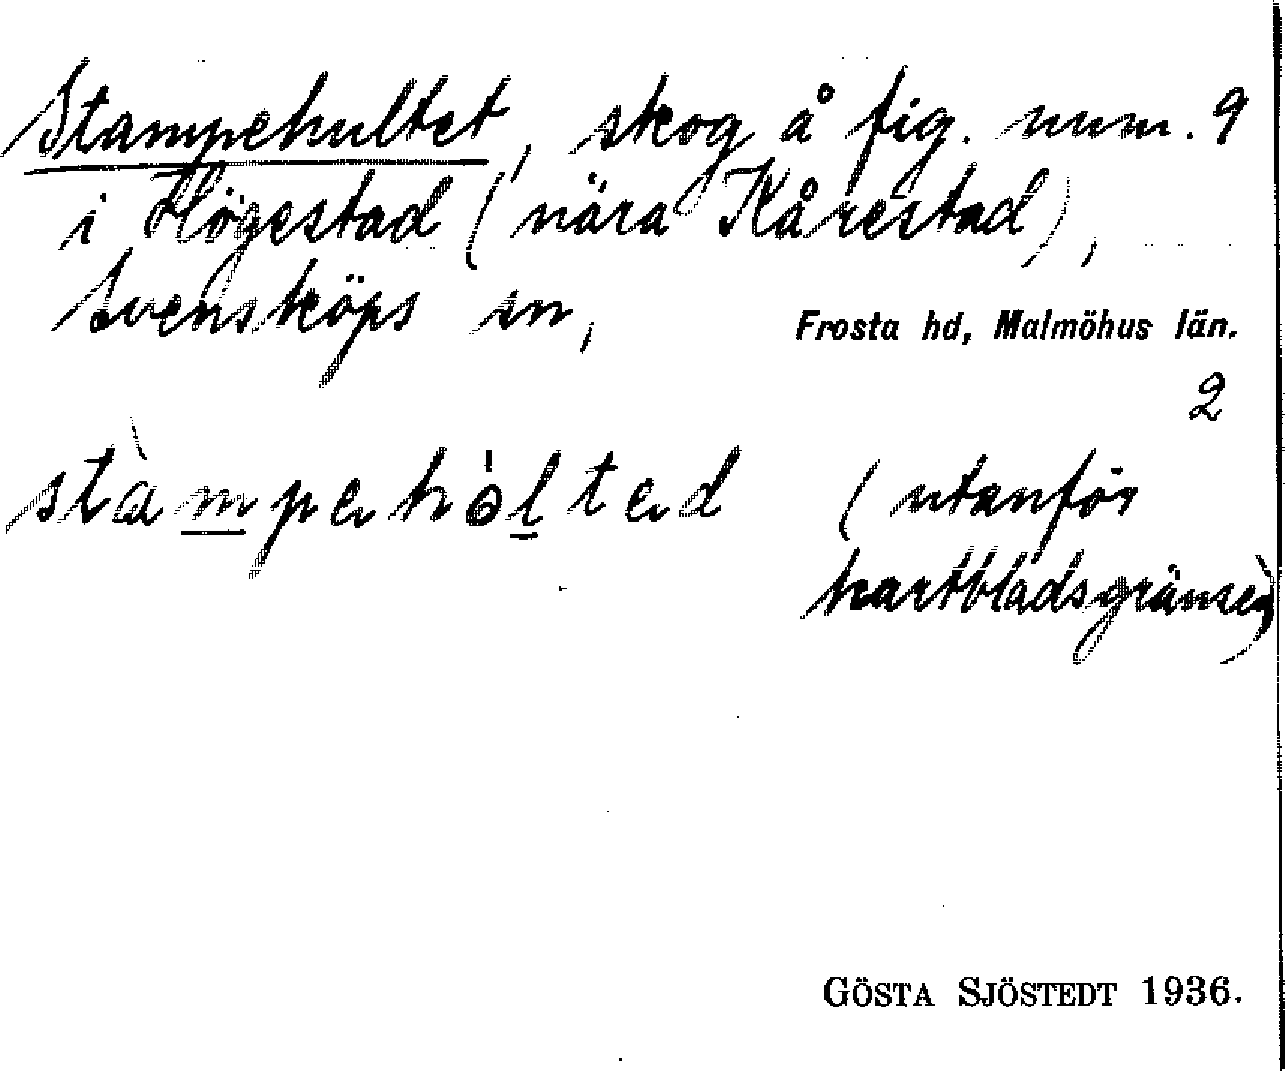 Stampehultet, skog å fig. num. 9
i Högestad (nära Kårestad),
Svensköps sn,
Frosta hd, Malmöhus län.
2
stàmpəhòltəd (utanför
kartbladsgränsen)
GÖSTA SJÖSTEDT 1936.